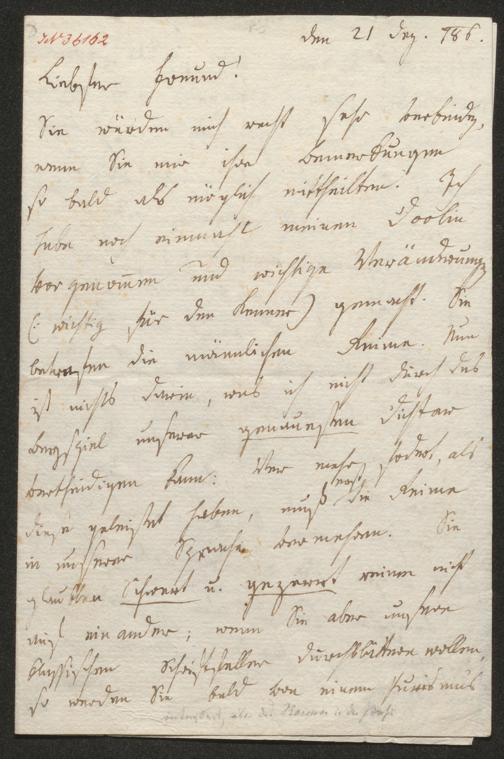 IN 36162
den 21 Dez. 786.
Liebster Freund!
Sie würden mich recht sehr verbinden,
wenn Sie mir ihre Bemerkungen
so bald als möglich mittheilten. Ich
habe noch einmahl meinen Doolin
vorgenommen und wichtige Veränderungen
(: wichtig für den Kenner) gemacht. Sie
betreffen die männlichen Reime. Nun
ist nichts darin, was ich nicht durch das
Beyspiel unserer genauesten Dichter
vertheidigen kann. Wer mehr fodert, als
diese geleistet haben, muß erst die Reime
in unserer Sprache vermehren. Sie
glaubten Schwert u. gezerrt reimen nicht
auf einander; wenn Sie aber unsere
klassischen Schriftsteller durchblättern wollen,
so werden Sie bald von einem Purismus